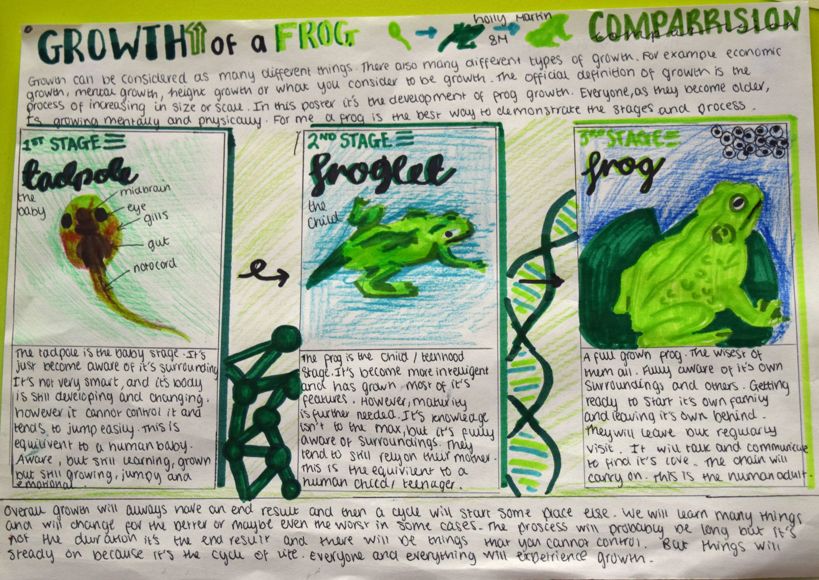 GROWTH of a FROG
holly Martin
8M
COMPARRISION
Growth can be considered as many different things. There also many different types of growth. For example economic
growth, mental growth, height growth or what you consider to be growth. The official definition of growth is the
process of increasing in size or scale. In this poster it's the development of frog growth. Everyone, as they become older,
is growing mentally and physically. For me a frog is the best way to demonstrate the stages and process.
1ST STAGE
tadpole
the
baby
midbrain
eye
gills
gut
notocord
The tadpole is the baby stage. It's
just become aware of it's surrounding
It's not very smart, and it's body
is still developing and changing.
however it cannot control it and
tends to jump easily. This is
equilivent to a human baby.
Aware, but still learning, grown
but still growing, jumpy and
emotional
2ND STAGE
froglet
the
Child
The frog is the child / teenhood
stage. It's become more intelligent
and has grown most of it's
features. However, maturity
is further needed. It's knowledge
isn't to the max, but it's fully
aware of surroundings. They
tend to still rely on their mother.
This is the equilivent to a
human child / teenager.
3RD STAGE
frog
A full grown frog. The wisest of
them all. Fully aware of it's own
surroundings and others. Getting
ready to start it's own family
and leaving it's own behind.
They will leave but regularly
visit. It will talk and communicate
to find it's love. The chain will
carry on. This is the human adult.
Overall growth will always have an end result and then a cycle will start some place else. We will learn many things
and will change for the better or maybe even the worst in some cases. The proscess will probably be long but it's
not the duration it's the end result and there will be things that you cannot control. But things will
steady on because it's the cycle of life. Everyone and everything will experience growth.